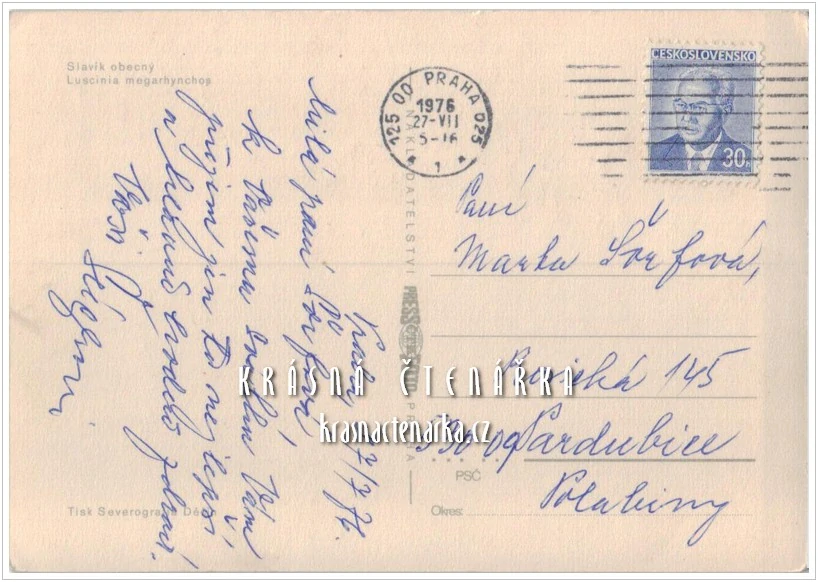 Slavík obecný
Luscinia megarhynchos
125 00 PRAHA 025
1976
27-VII
1
ČESKOSLOVENSKO
30
Praha 27/7 76.
Milá paní Šorfová
k Vašemu svátku Vám
přejeme jen to nejlepší
a hlavně hodně zdraví.
Vaši
NAKLADATELSTVÍ PRESSFOTO PRAHA
Paní
Marta Šorfová,
145
530 09 Pardubice
Polabiny
PSČ
Okres:
Tisk Severografie Děčín
KRÁSNÁ ČTENÁŘKA
krasnactenarka.cz